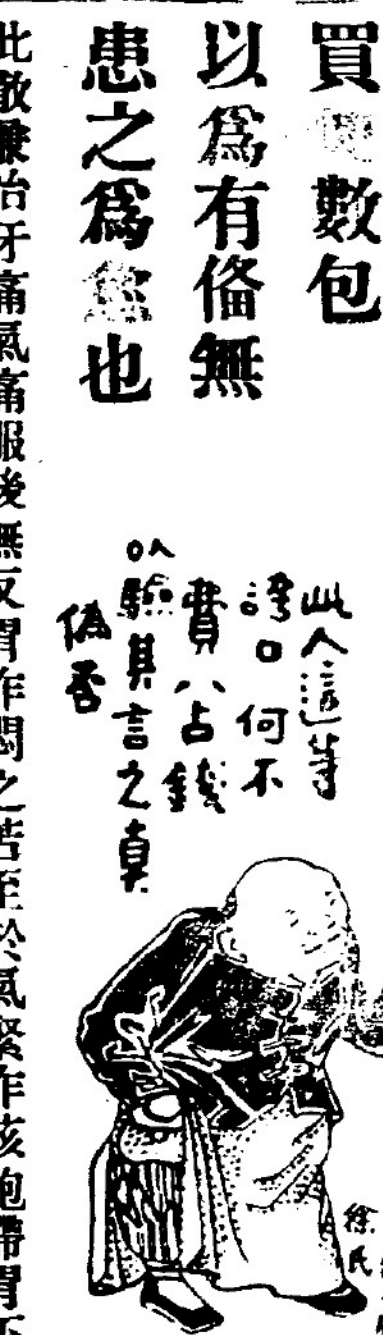 買數包
以爲有俻無
患之爲也
此人這等
誇口何不
費八占錢
以驗其言之真
偽否
徐
此散兼治牙痛氣痛服後無反胃作悶之苦至於氣緊作咳飽滯胃不